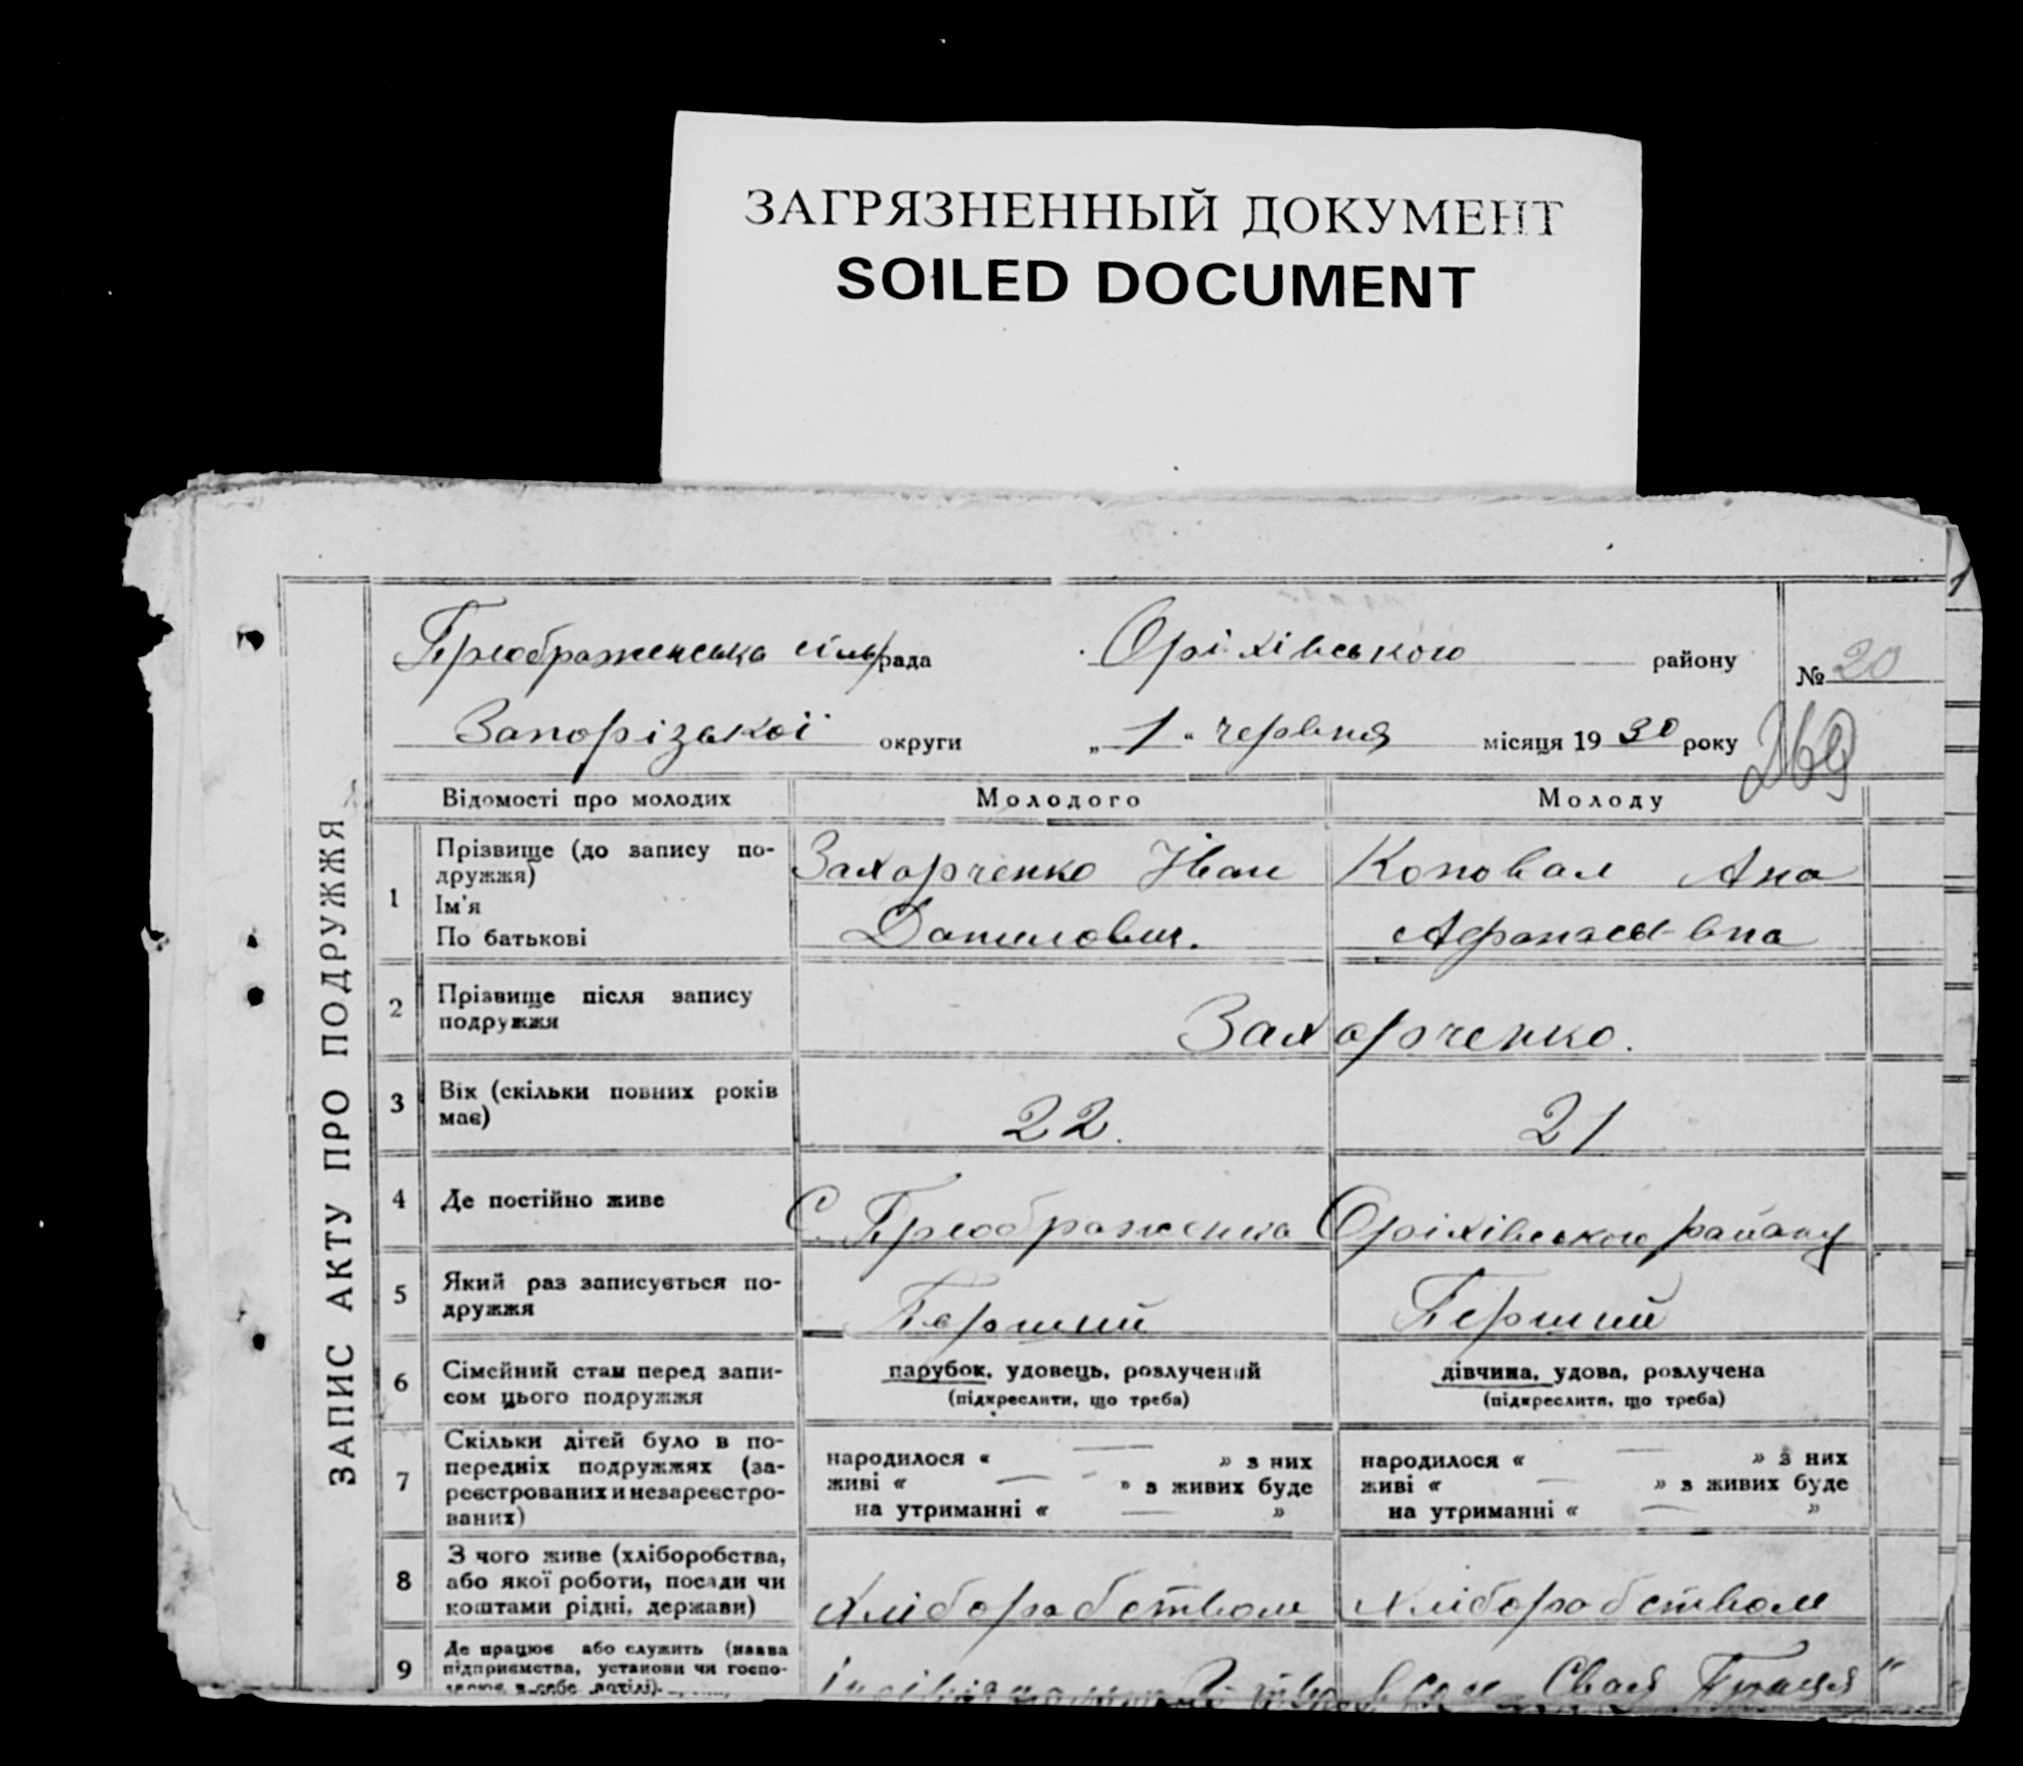 ЗАГРЯЗНЕННЫЙ ДОКУМЕНТ
SOILED DOCUMENT
ЗАПИС АКТУ ПРО ПОДРУЖЖЯ
Преображенська сіль рада Оріхівського району № 20
Запорізької округи „1“ червня місяця 1930 року
Відомості про молодих Молодого Молоду
1 Прізвище (до запису по- Захорченко Іван Коновал Ана
дружжя)
Ім'я
По батькові Данилович. Афанасівна
2 Прізвище після запису
подружжя Захорченко.
3 Вік (скільки повних років
має) 22. 21
4 Де постійно живе С. Преображенка Оріхівського району
5 Який раз записується по-
дружжя Перший Перший
6 Сімейний стан перед запи- парубок, удовець, розлучений дівчина, удова, розлучена
сом цього подружжя (підкреслити, що треба) (підкреслити, що треба)
7 Скільки дітей було в по-
передніх подружжях (за- народилося « — » з них народилося « — » з них
реєстрованих и незареєстро- живі « — » з живих буде живі « — » з живих буде
ваних) на утриманні « — » на утриманні « — »
8 З чого живе (хліборобства,
або якої роботи, посади чи
коштами рідні, держави) Хліборобством Хліборобством
9 Де працює або служить (назва
підприємства, установи чи госпо- Своя Праця"